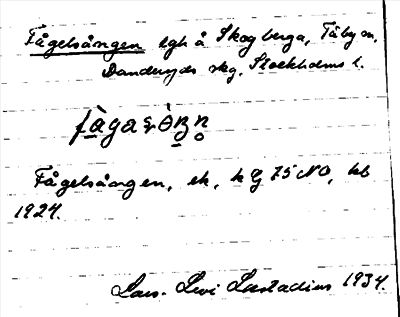 Fågelsången lgh å Skogberga, Täby sn,
Danderyds skg, Stockholms l.
Fågelsången, ek, k bl 75 NO, hb
1924.
Lars-Levi Læstadius 1934.